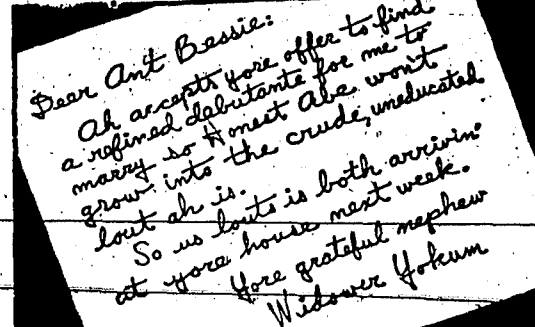 Deer An't Bessie:
Ah accepts yore offer to find
a refined debutante for me to
marry so Honest Abe won't
grow into the crude, uneducated
lout ah is.
So us louts is both arrivin'
at yore house next week.
Yore grateful nephew
Widower Yokum